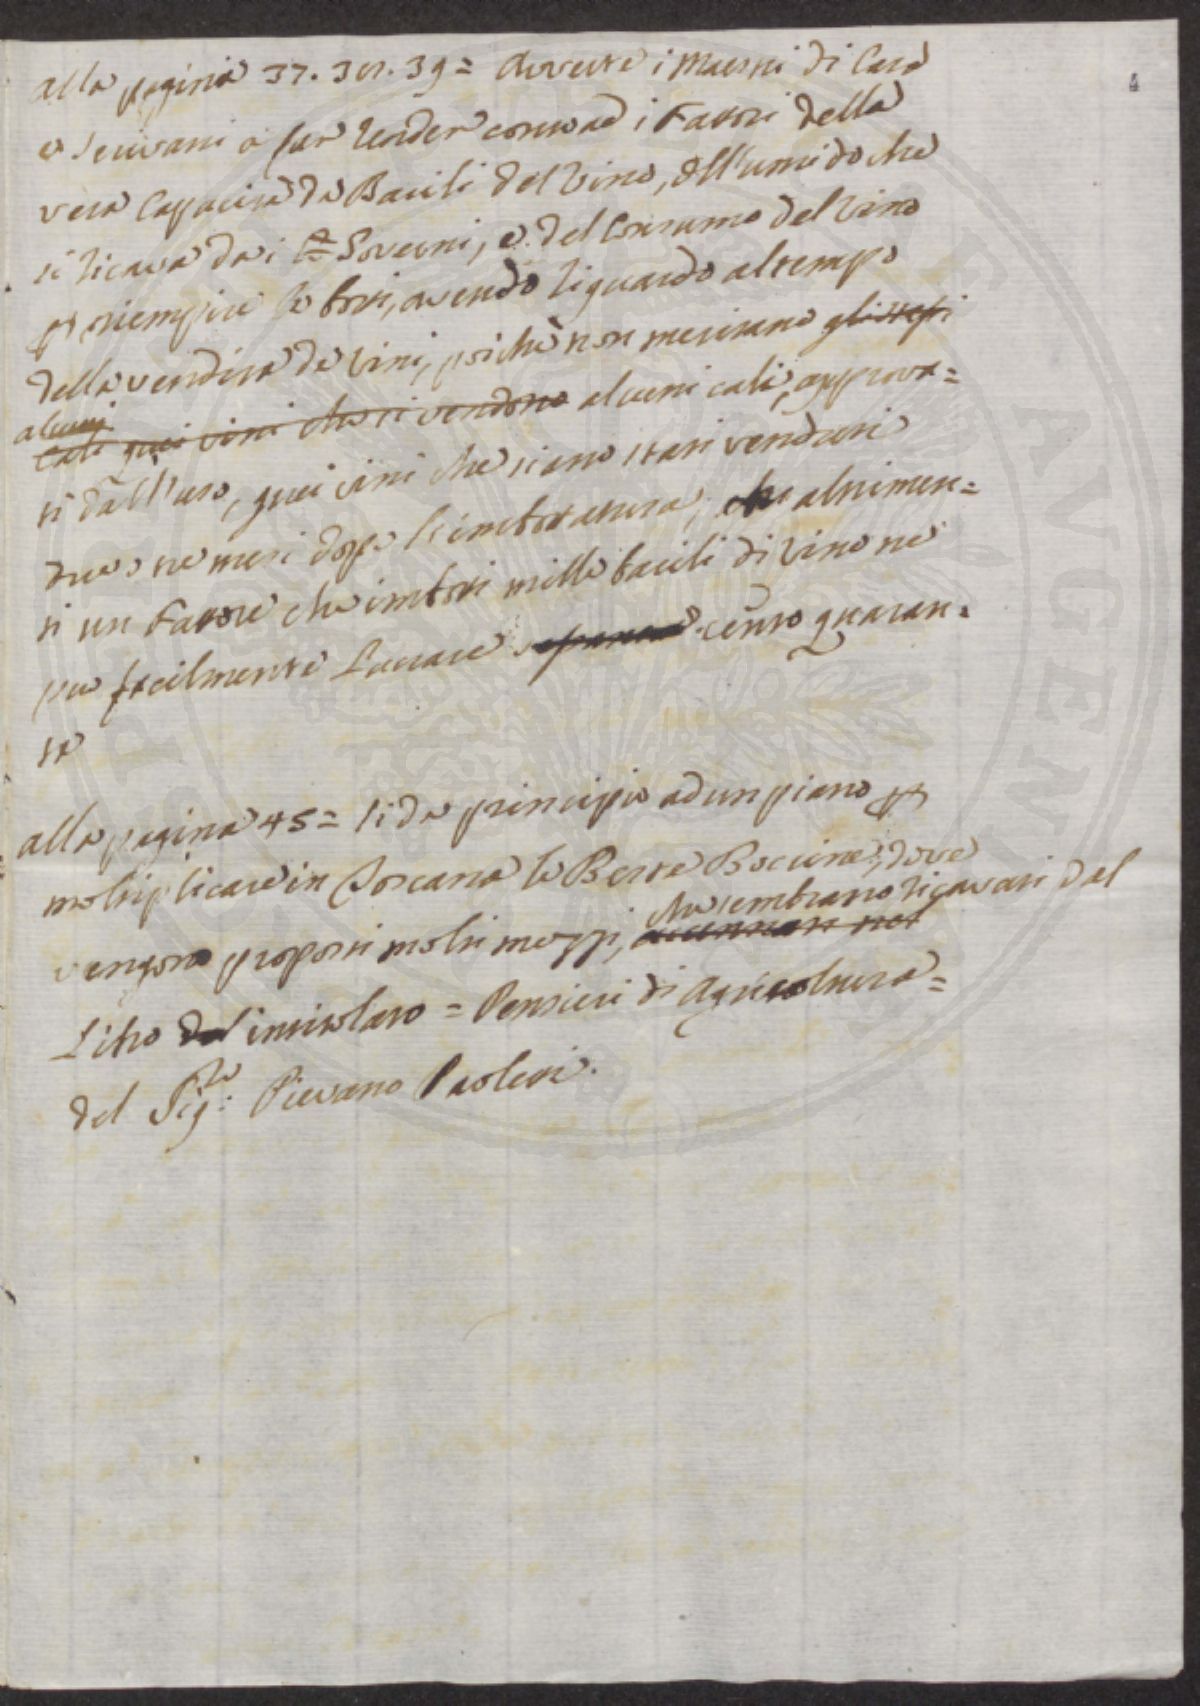 4
alla pagina 37. 38. 39 = Avverte i Maestri di Casa
e Scrivani a far render conto ad i Fattori della
vera Capacità de Barili del Vino, dell'umido che
si ricava da i Governi, e del Consumo del Vino
riempire le botti, avendo riguardo al tempo
della vendita de Vini, poichè non meritano gli stessi
alcuni
cali quei vini che si vendono alcuni cali, approva=
ti dall'uso, quei vini che siano stati venduti
due o tre mesi dopo l'imbottatura, che altrimen=
ti un Fattore che imbotti mille barili di Vino ne
può facilmente Lucrare centoquaran=
ta
alla pagina 45 = Si da principio ad un piano p
moltiplicare in Toscana le Bestie Boccine, dove
che sembrano ricavati dal
vengono proposti molti mezzi, accennati nel
Libro del intitolato = Pensieri di Agricoltura =
del Sig.re Pievano Paoletti.